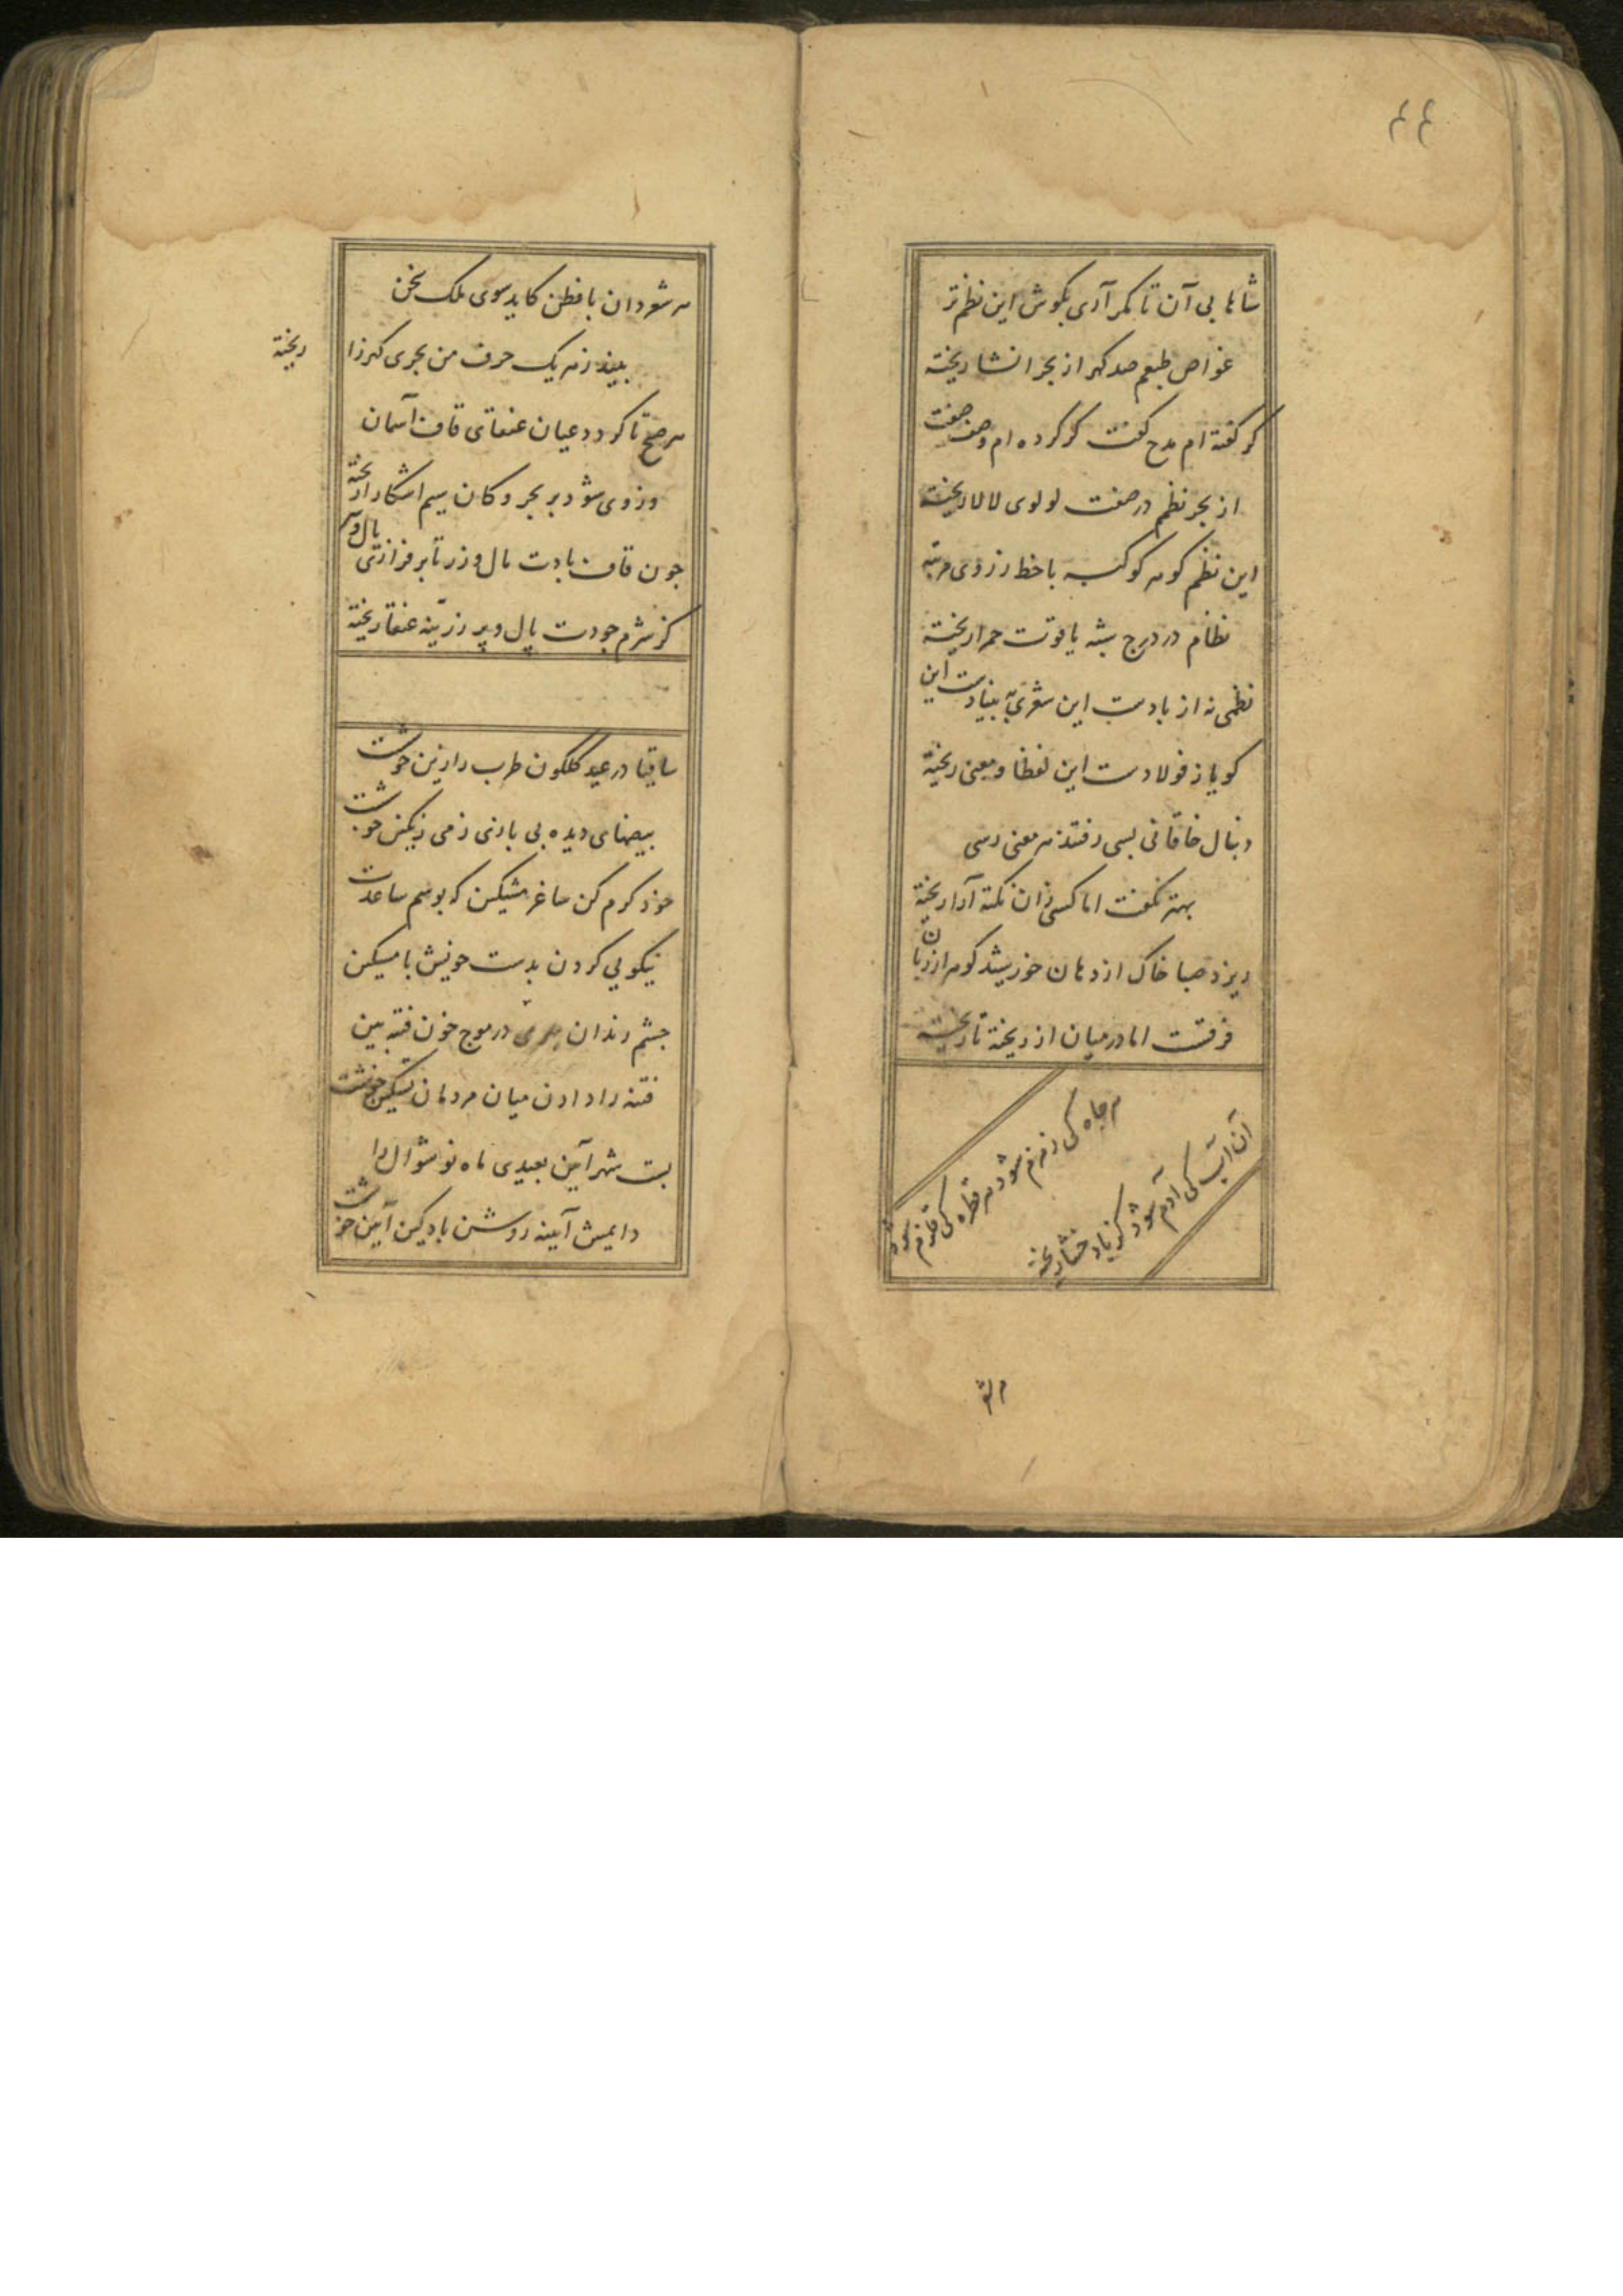 ۴۴
شاها بی آن تا کمر آری بگوش این نظم تر
غواص طبعم صد کهر از بحر انشا ریخته
کر کفته ام مدح کفت کر کرده ام وصف صفت
از بحر نظم در صفت لولوی لالا ریخته
این نظم کوهر کوکبه با خط زر وی مرتبه
نظام در درج شبه یاقوت حمرا ریخته
نظمی نه از بادست این شعری به بنیادست این
کویا ز فولادست این لفظا و معنی ریخته
دنبال خاقانی بسی رفتند هر معنی رسی
بهتر نکفت اما کسی زان نکته آرا ریخته
ریزد صبا خاک از دهان خورشید کوهر از زبان
فرقست اما در میان از ریخته تا ریخته
هر جاه کی زمزم شود هر قطره کی قلزم شود
آن آب کی آدم شود کز باد خشا ریخته
هر شعر
هر شعر دان با فطن کاید سوی ملک سخن
بیند زهر یک حرف من بحری کهرزا ریخته
هر صبح تا کردد عیان عنقای قاف آسمان
وز وی شود بر بحر و کان سیم اشکارا ریخته
جون قاف بادت مال و زر تا بر فرازتی بال و پر
کز شرم جودت بال و پر زرینه عنقا ریخته
ساقیا در عید کلکون طرب را زین خوشست
بیصهای دیده بی بارنی ز می رنکین خوشست
خود کرم کن ساغر مشکین که بوسم ساعدت
نیکویی کردن بدست خویش با مسکین
جشم رندان در موج خون فتنه بین
فتنه را دادن میان مردمان تسکین خوشست
بست شهر آیین بعیدی ماه نو شوال را
دایمش آیینه روشن باد کین آیین خوشست